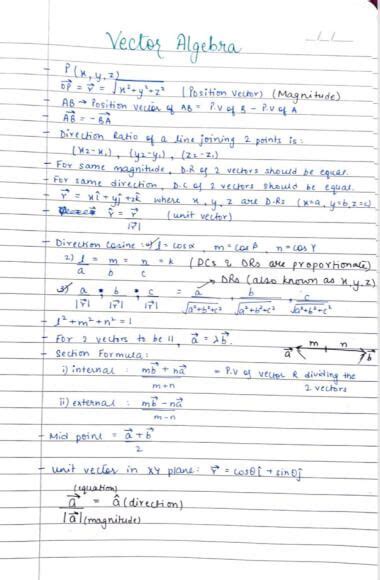 Vector Algebra
- P(x, y, z)
OP⃗ = r⃗ = √x²+y²+z² (Position vector) (Magnitude)
- AB → Position vector of AB = P.V of B - P.V of A
- AB⃗ = -BA⃗
- Direction Ratio of a line joining 2 points is:
(x₂-x₁), (y₂-y₁), (z₂-z₁)
- For same magnitude, D.R of 2 vectors should be equal.
- For same direction, D.C of 2 vectors should be equal.
- r⃗ = xî + yĵ + zk̂ where x, y, z are D.Rs (x=a, y=b, z=c)
- r̂ = r⃗/|r⃗| (unit vector)
- Direction Cosine : 1) l = cosα, m = cosβ, n = cosγ
2) l/a = m/b = n/c = k (DCs & DRs are proportionate)
→ DRs (also known as x,y,z)
3) a/|r⃗| , b/|r⃗| , c/|r⃗| = a/√a²+b²+c² , b/√a²+b²+c² , c/√a²+b²+c²
- l²+m²+n² = 1
- For 2 vectors to be ||, a⃗ = λb⃗.
a⃗ m n b⃗
- Section Formula:
i) internal : mb⃗ + na⃗/m+n = P.V of vector R dividing the 2 vectors
ii) external : mb⃗ - na⃗/m-n
- Mid point = a⃗ + b⃗/2
- Unit vector in XY plane: r⃗ = cosθî + sinθĵ
(equation)
a⃗/|a⃗| (magnitude) = â (direction)